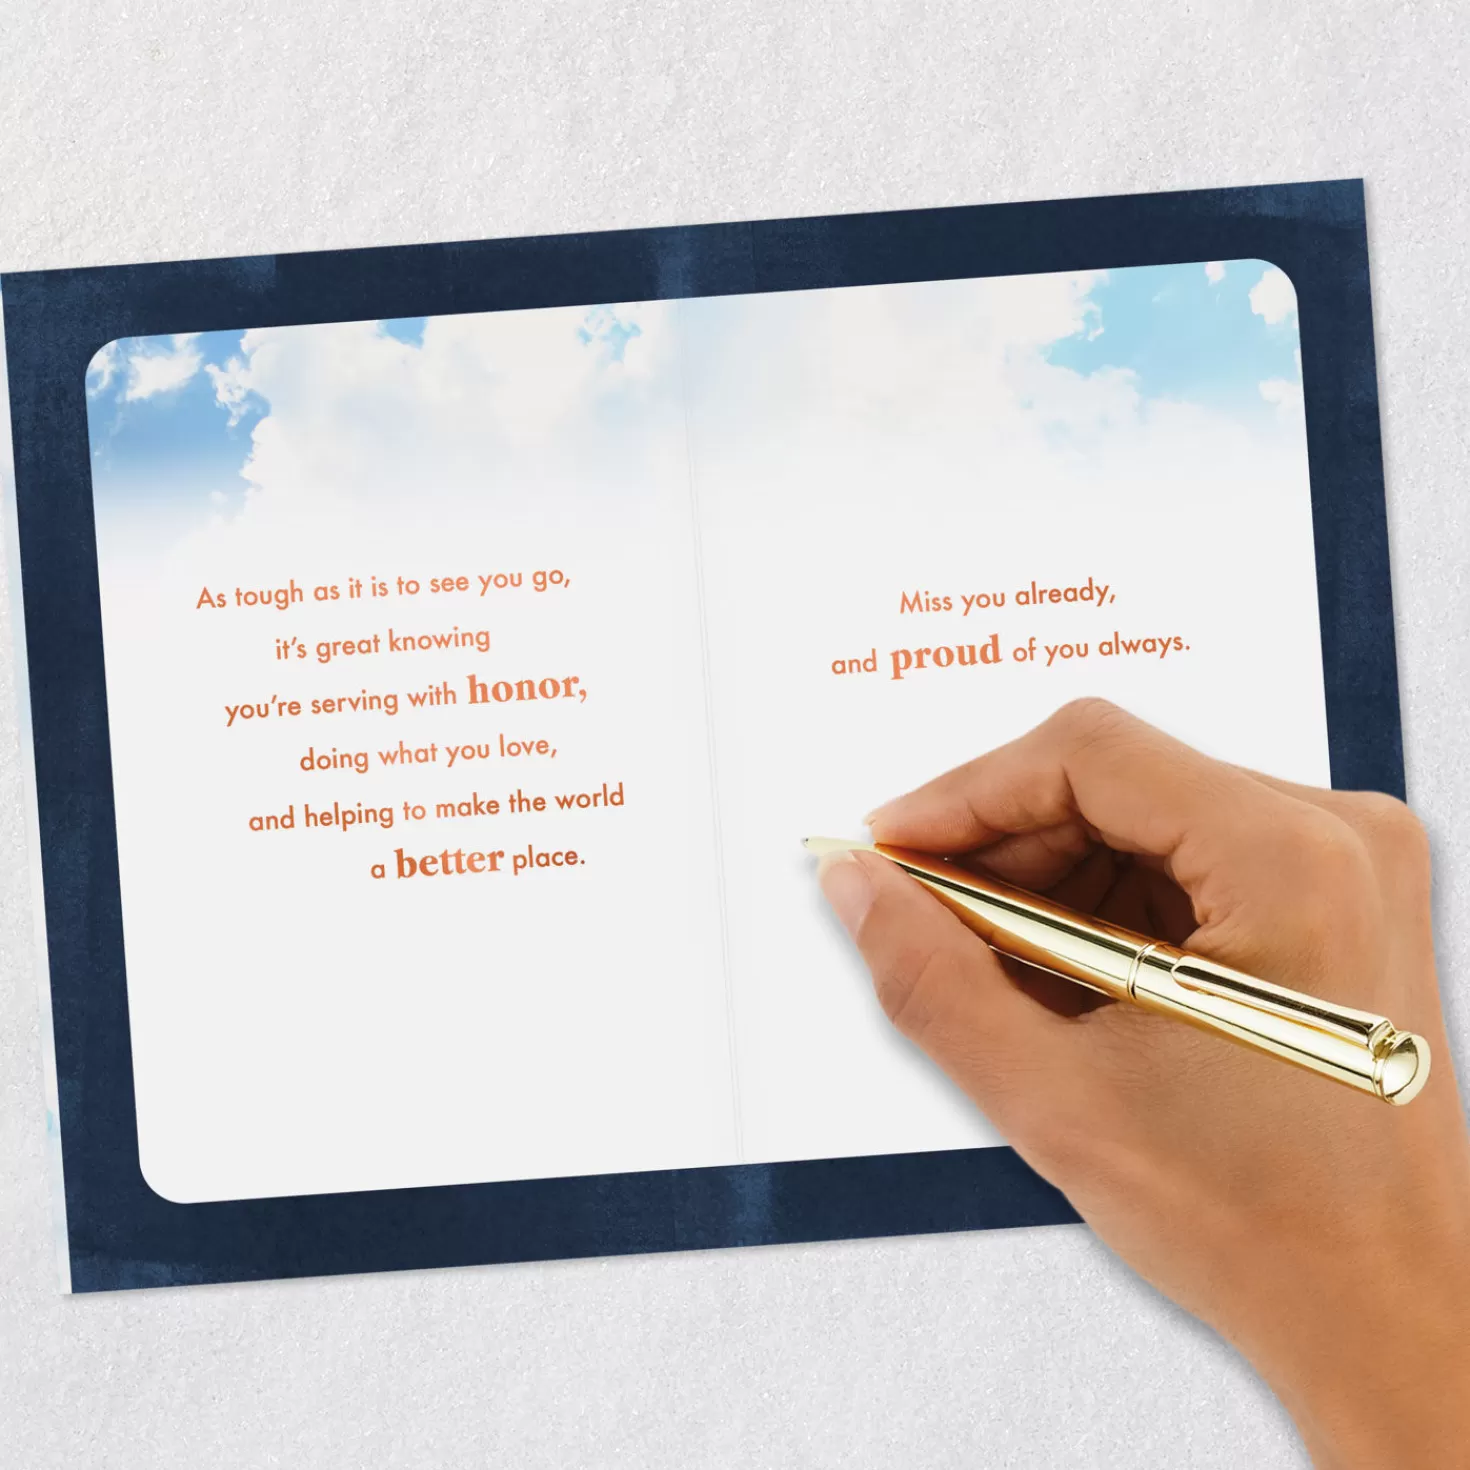 As tough as it is to see you go,
it's great knowing
you're serving with honor,
doing what you love,
and helping to make the world
a better place.
Miss you already,
and proud of you always.